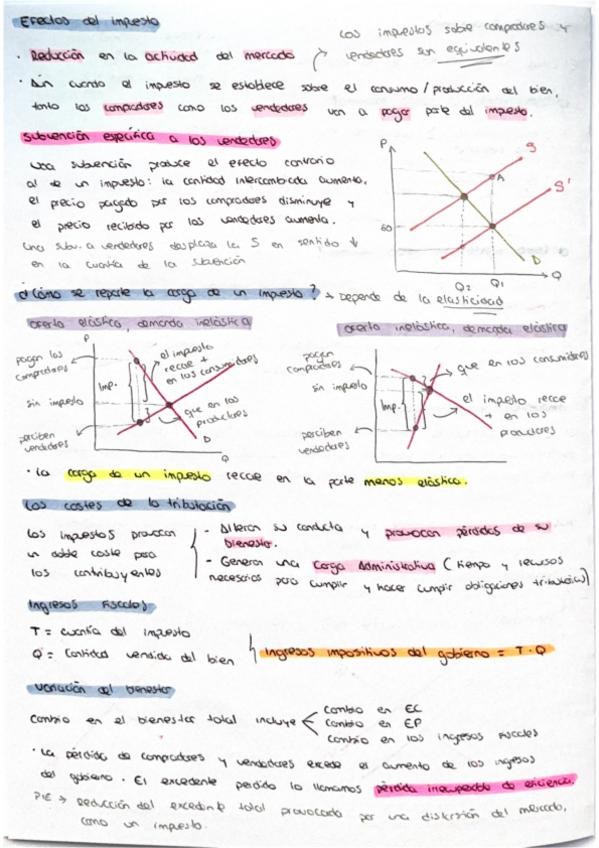 Efectos del impuesto
Los impuestos sobre compradores y
vendedores son equivalentes
· Reducción en la actividad del mercado
· Aún cuando el impuesto se establece sobre el consumo / producción del bien,
tanto los compradores como los vendedores van a pagar parte del impuesto.
Subvención específica a los vendedores
una subvención produce el efecto contrario
al de un impuesto: la cantidad intercambiada aumenta,
el precio pagado por los compradores disminuye y
el precio recibido por los vendedores aumenta.
Una subv. a vendedores desplaza la S en sentido ↓
en la cuantía de la subvención
P
S
A
S'
60
D
Q2 Q1 Q
¿Cómo se reparte la carga de un impuesto? → Depende de la elasticidad
oferta elástica, demanda inelástica
oferta inelástica, demanda elástica
P
pagan los
compradores
sin impuesto
perciben
vendedores
Imp.
el impuesto
recae +
en los consumidores
que en los
productores
D
Q
pagan
compradores
sin impuesto
perciben
vendedores
Imp.
que en los consumidores
el impuesto recae
+ en los
productores
· La carga de un impuesto recae en la parte menos elástica.
Los costes de la tributación
Los impuestos provocan
un doble coste para
los contribuyentes
- Alteran su conducta y provocan pérdidas de su
bienestar.
- Generan una Carga Administrativa (tiempo y recursos
necesarios para cumplir y hacer cumplir obligaciones tributarias)
Ingresos Fiscales
T = cuantía del impuesto
Q = Cantidad vendida del bien
Ingresos impositivos del gobierno = T · Q
Variación del bienestar
Cambio en el bienestar total incluye
cambio en EC
cambio en EP
cambio en los ingresos fiscales
· La pérdida de compradores y vendedores excede el aumento de los ingresos
del gobierno. El excedente perdido lo llamamos pérdida irrecuperable de eficiencia.
PIE → Reducción del excedente total provocada por una distorsión del mercado,
como un impuesto.